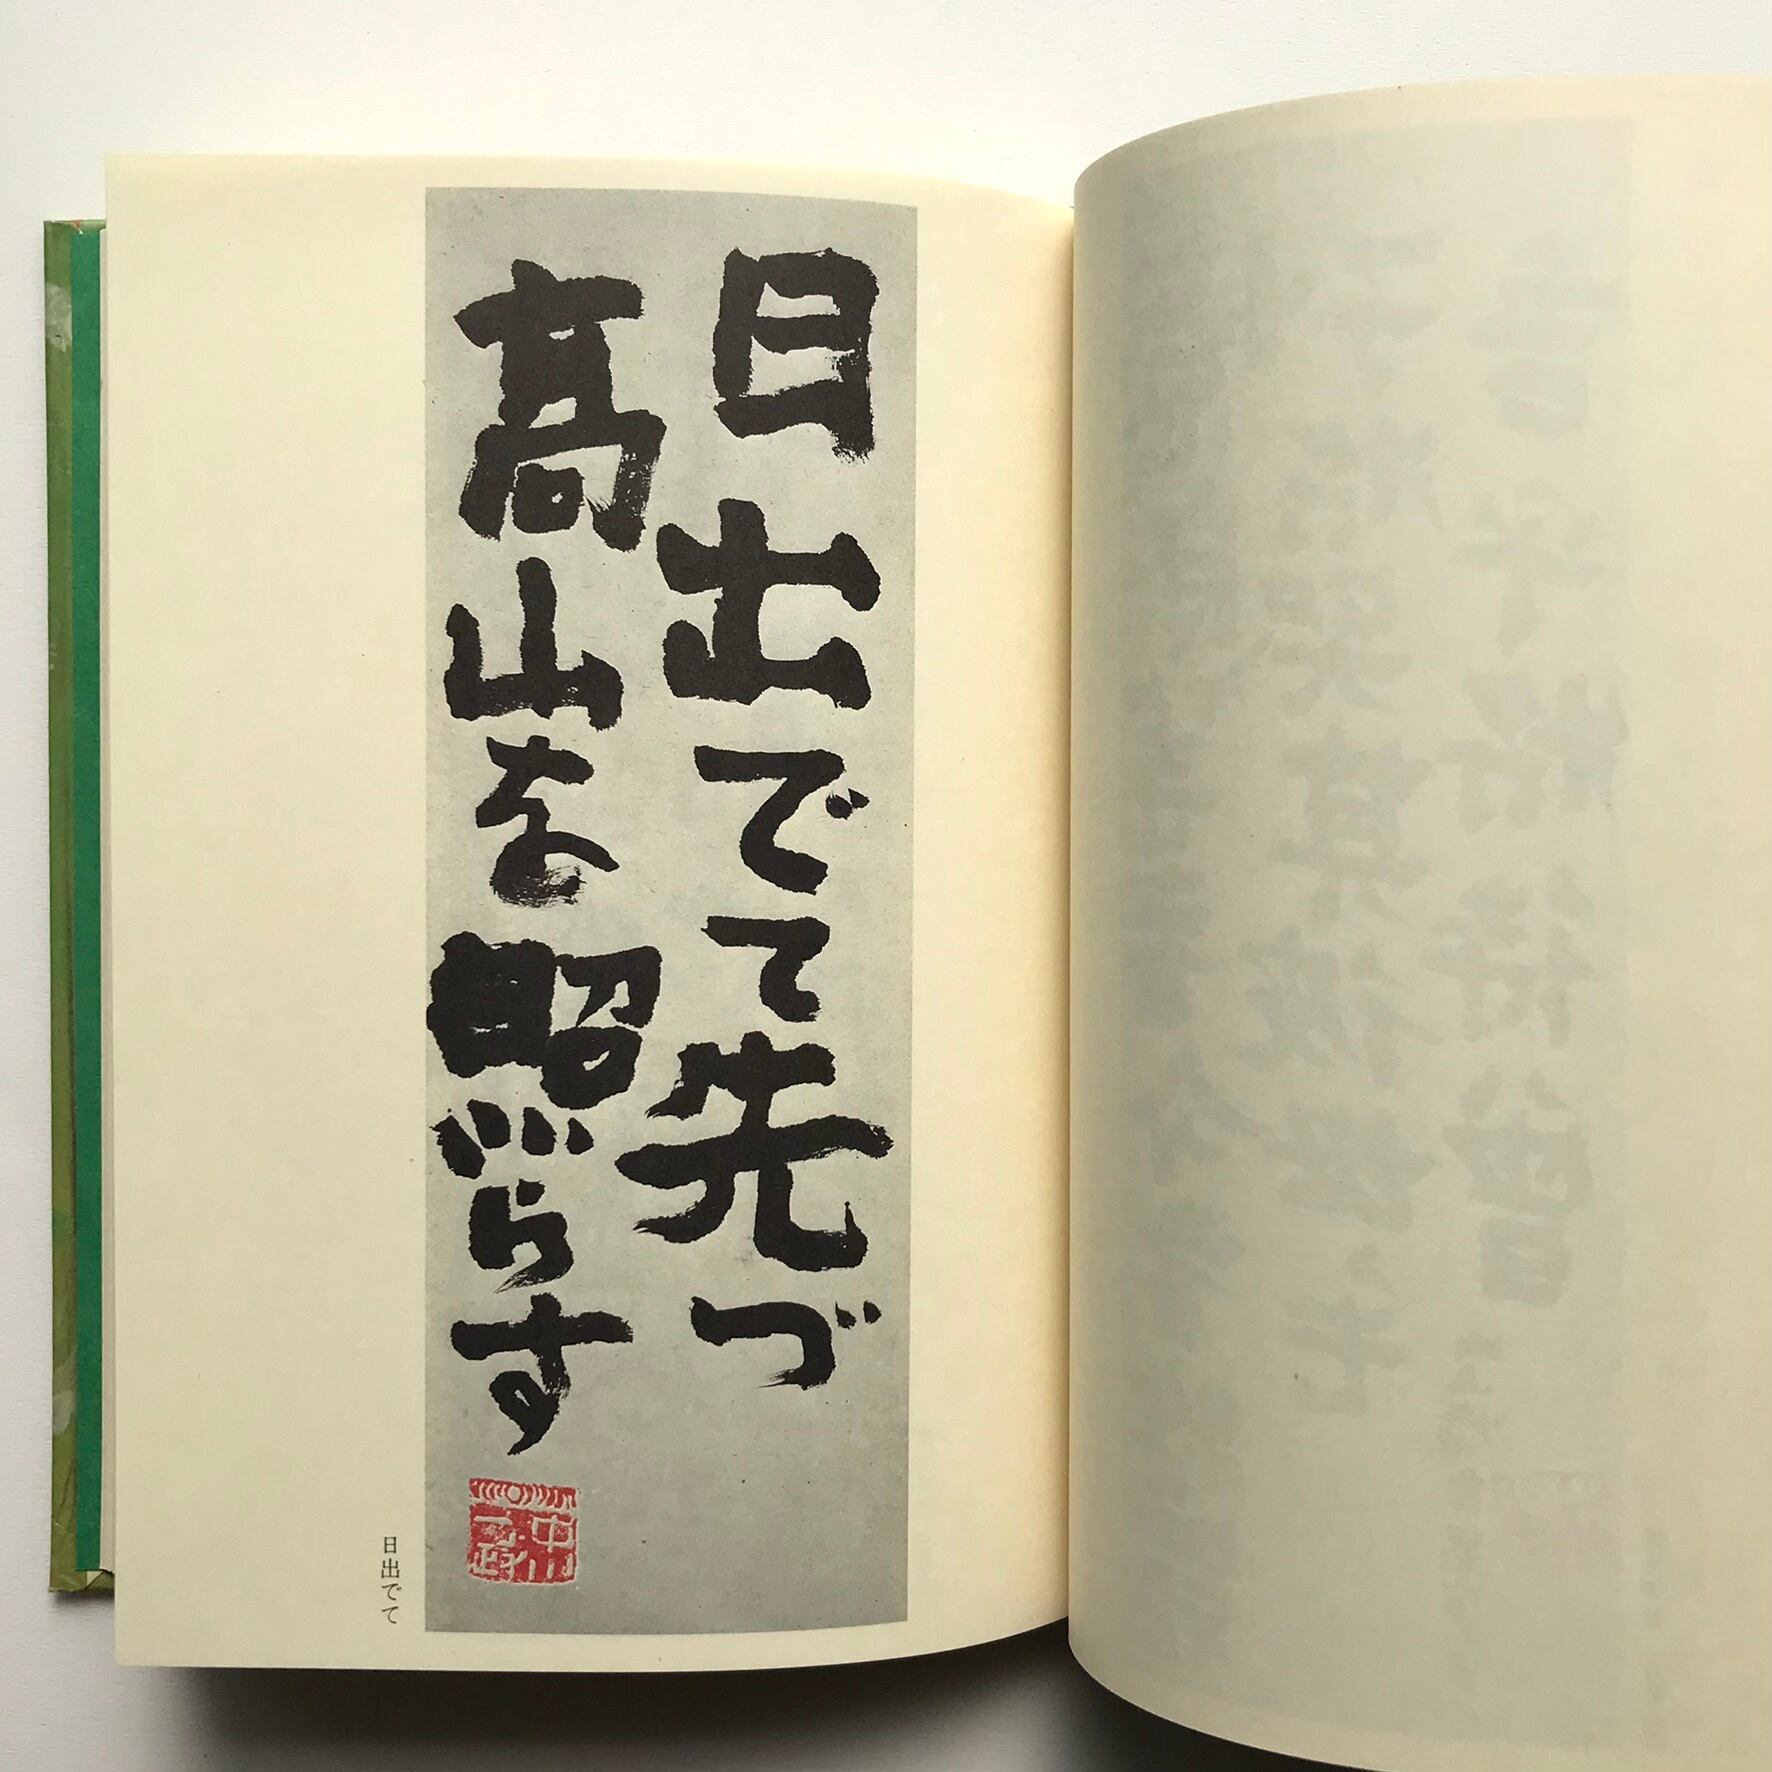 日出でて先づ
高山を照らす
中川
一政
日出でて